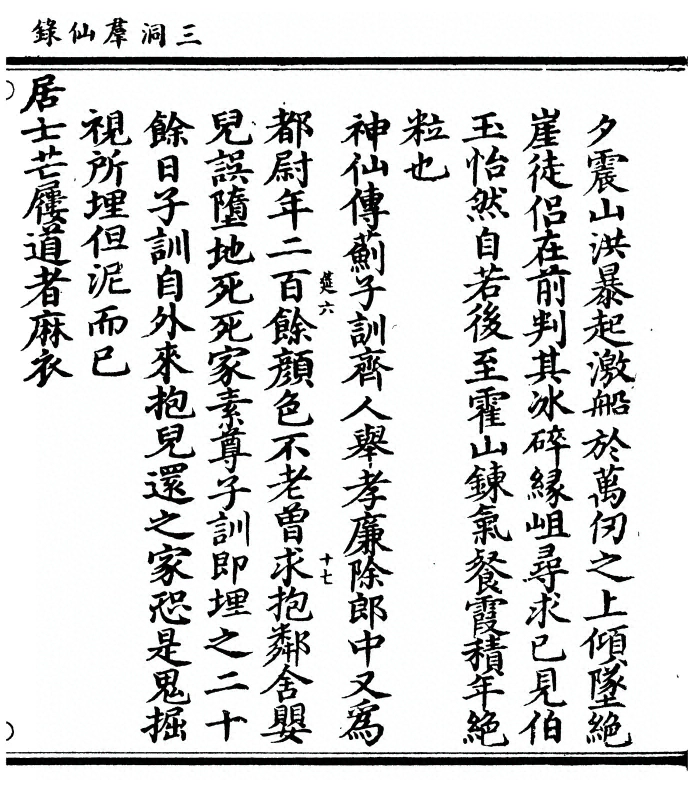 三洞羣仙錄
夕震山洪暴起激船於萬仞之上傾墜絶
崖徒侣在前判其冰碎緣岨尋求已見伯
玉怡然自若後至霍山鍊氣餐霞積年絶
粒也
神仙傳薊子訓齊人舉孝廉除郎中又爲
都尉年二百餘顔色不老曾求抱鄰舍嬰
兒誤墮地死死家素尊子訓即埋之二十
餘日子訓自外來抱兒還之家恐是鬼掘
視所埋但泥而已
居士芒屨道者麻衣
六
十七